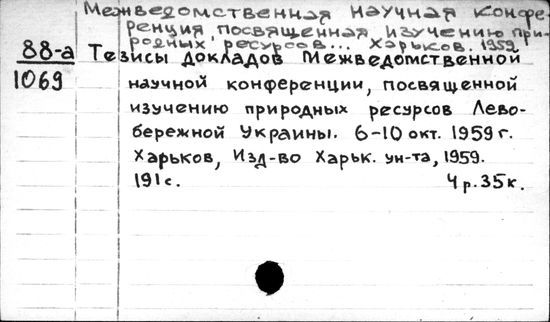 Межведомственная научная конфе-
ренция, посвященная изучению при-
родных ресурсов... Харьков. 1959
88-а Тезисы докладов Межведомственной
1069 научной конференции, посвященной
изучению природных ресурсов Лево-
бережной Украины. 6-10 окт. 1959 г.
Харьков, Изд-во Харьк. ун-та, 1959.
191 с. 4 р. 35 к.